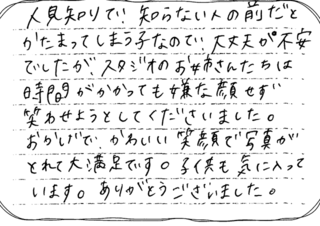 人見知りで、知らない人の前だと
かたまってしまう子なので、大丈夫か不安
でしたが、スタジオのお姉さんたちは
時間がかかっても嫌な顔せず
笑わせようとしてくださいました。
おかげで、かわいい笑顔で写真が
とれて大満足です。子供も気に入って
います。ありがとうございました。